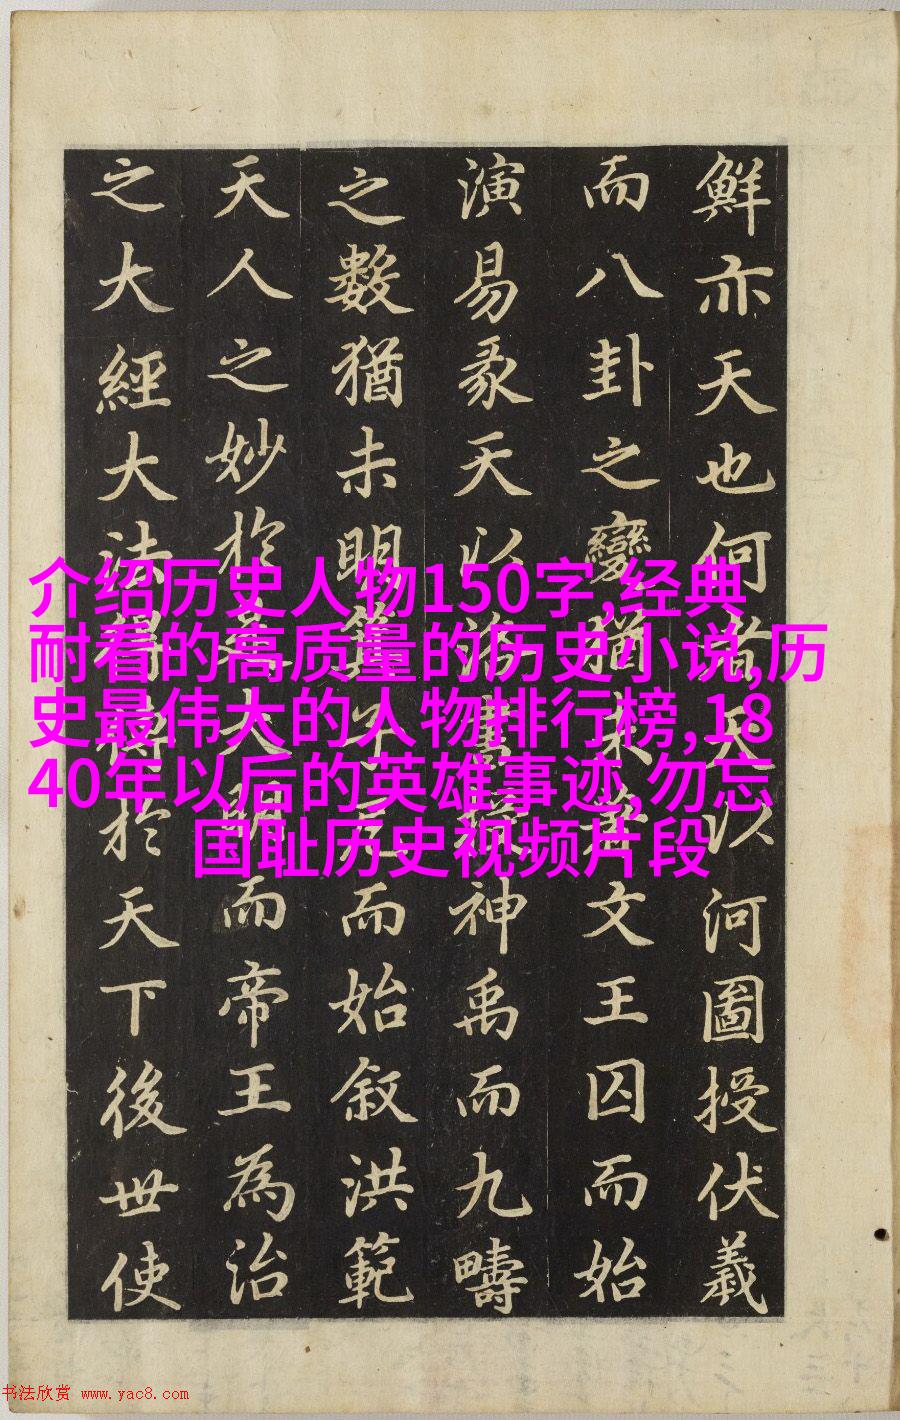 鮮亦天也何者天以河圖授伏羲
而八卦之變猶未著文王囚而始
演易彖天以洛書神禹而九疇
之數猶未明箕子而始叙洪範
天人之妙於是大明而帝王為治
之大經大法得於天下後世使
介绍历史人物150字,经典
耐看的高质量的历史小说,历
史最伟大的人物排行榜,18
40年以后的英雄事迹,勿忘
国耻历史视频片段
书法欣赏 www.yac8.com